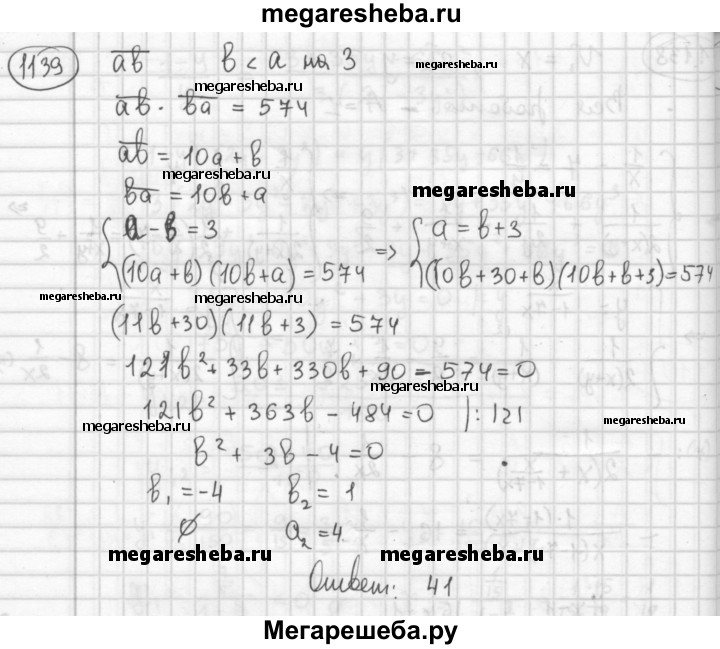 megaresheba.ru
1139 ab в < а на 3 megaresheba.ru
megaresheba.ru
ab · вa = 574
ab = 10a + в
megaresheba.ru
вa = 10в + a megaresheba.ru
{ a - в = 3 => { a = в + 3
(10a + в)(10в + a) = 574 (10в + 30 + в)(10в + в + 3) = 574
megaresheba.ru megaresheba.ru
(11в + 30)(11в + 3) = 574
121в² + 33в + 330в + 90 - 574 = 0
megaresheba.ru
121в² + 363в - 484 = 0 |: 121
megaresheba.ru megaresheba.ru
в² + 3в - 4 = 0
в₁ = -4 в₂ = 1
∅ a₂ = 4.
megaresheba.ru megaresheba.ru
Ответ: 41
Мегарешеба.ру